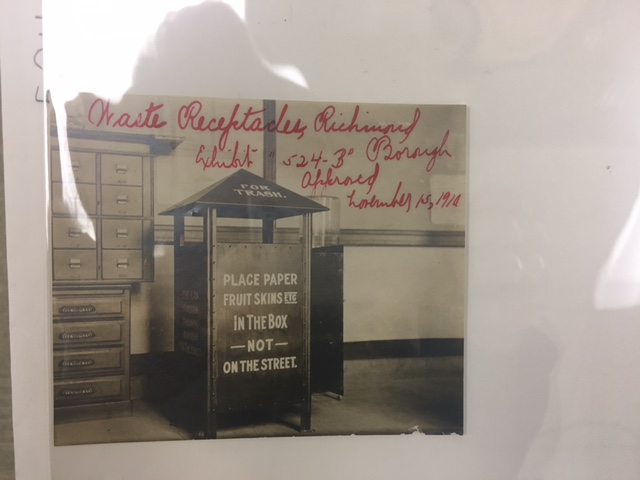 Waste Receptacles, Richmond
Exhibit "524-B" Borough
Approved
November 15, 1910
FOR
TRASH.
PLACE PAPER
FRUIT SKINS ETC
IN THE BOX
—NOT—
ON THE STREET.